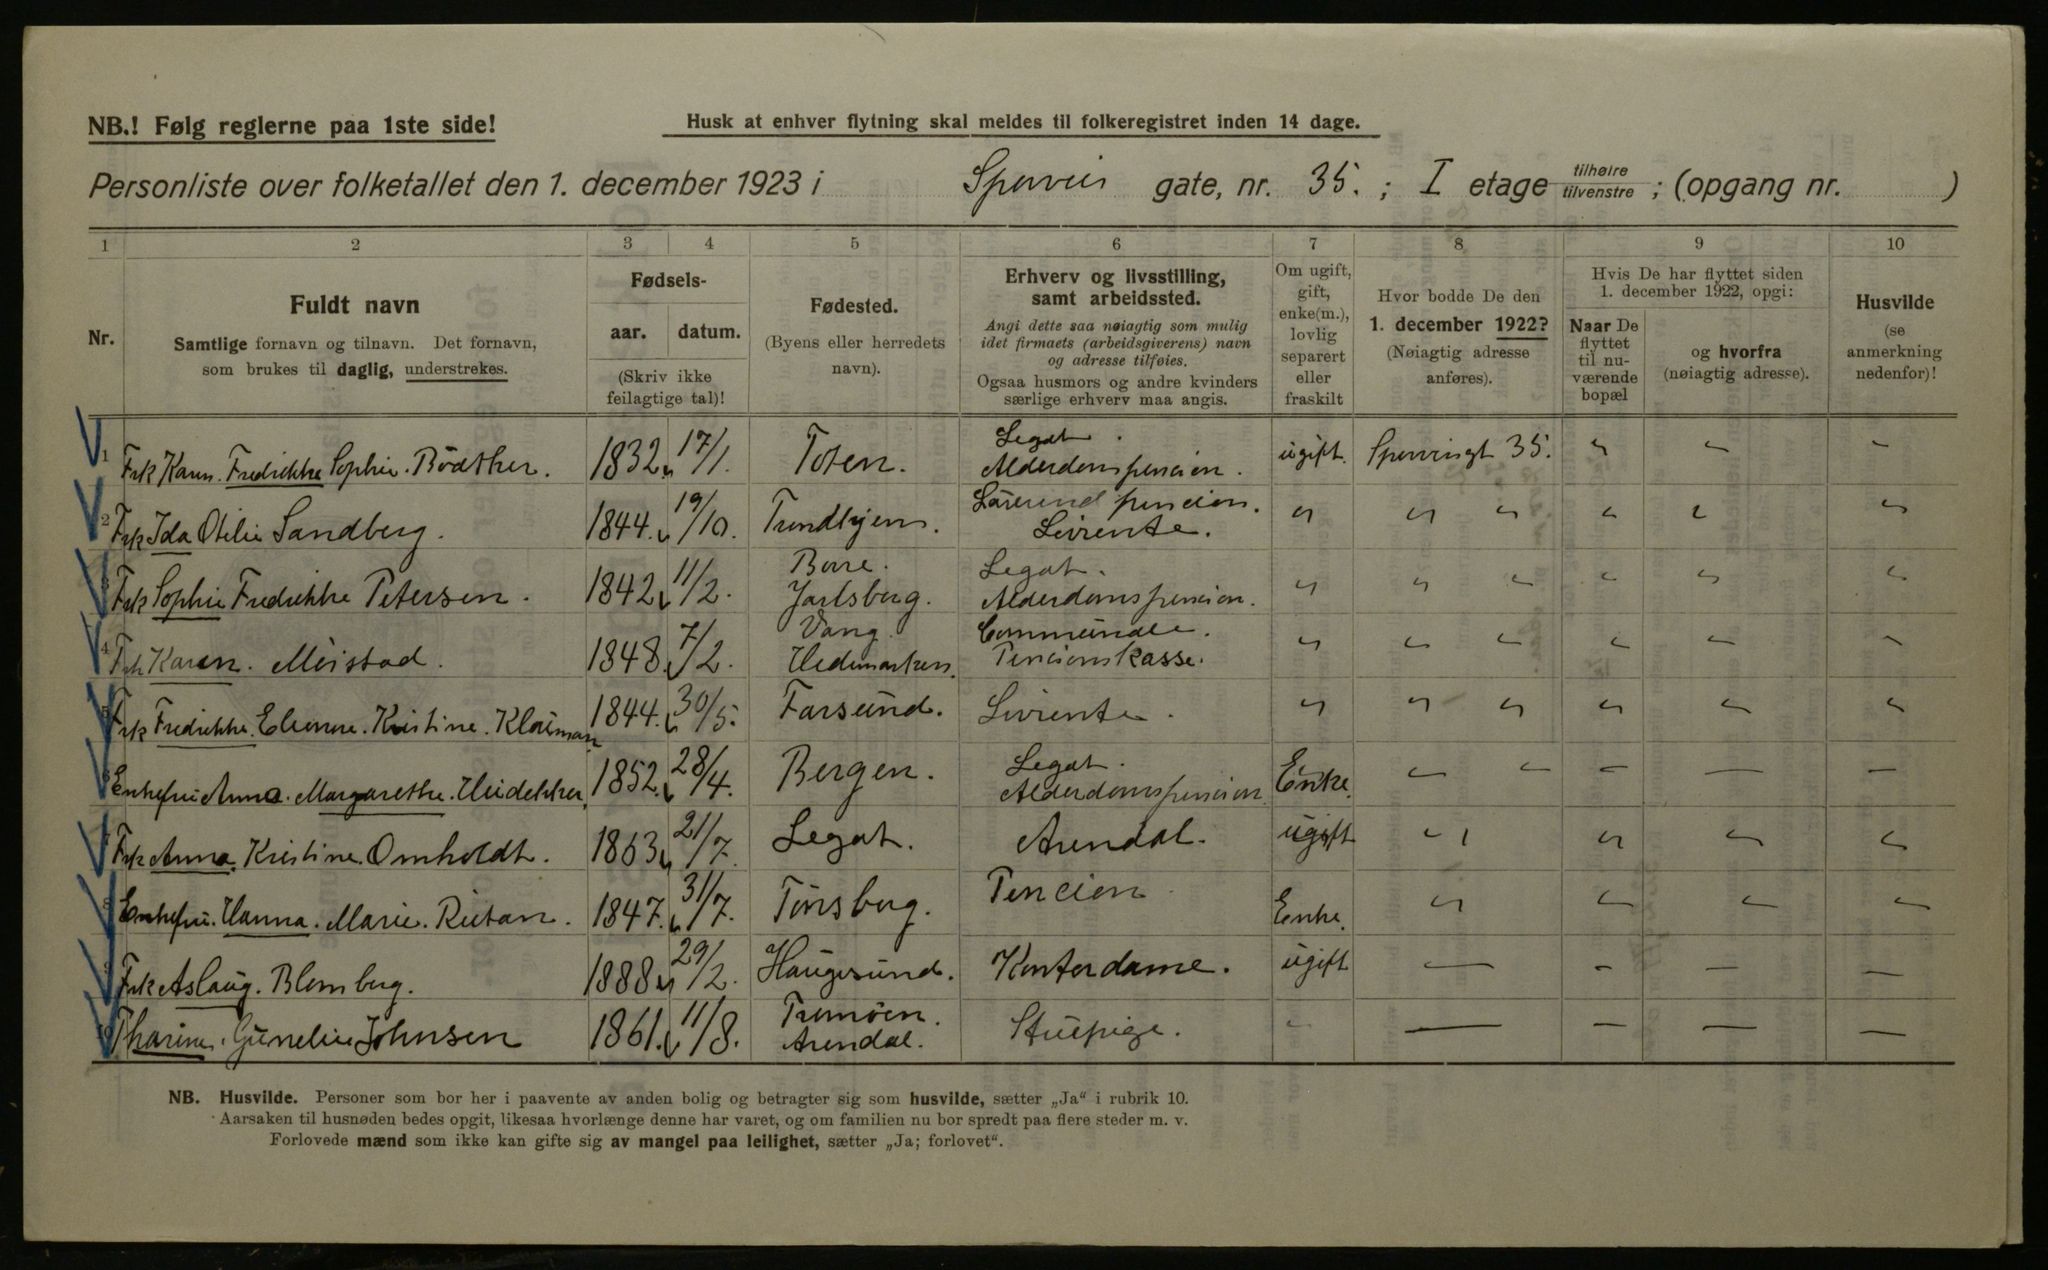 NB.! Følg reglerne paa 1ste side!
Husk at enhver flytning skal meldes til folkeregistret inden 14 dage.
Personliste over folketallet den 1. december 1923 i Sporveis gate, nr. 35. ; I etage tilhøire tilvenstre ; (opgang nr. )
1 2 3 4 5 6 7 8 9 10
Nr.
Fuldt navn
Samtlige fornavn og tilnavn. Det fornavn,
som brukes til daglig, understrekes.
Fødsels-
aar. datum.
(Skriv ikke
feilagtige tal)!
Fødested.
(Byens eller herredets
navn).
Erhverv og livsstilling,
samt arbeidssted.
Angi dette saa nøiagtig som mulig
idet firmaets (arbeidsgiverens) navn
og adresse tilføies.
Ogsaa husmors og andre kvinders
særlige erhverv maa angis.
Om ugift,
gift,
enke(m.),
lovlig
separert
eller
fraskilt
Hvor bodde De den
1. december 1922?
(Nøiagtig adresse
anføres).
Hvis De har flyttet siden
1. december 1922, opgi:
Naar De
flyttet
til nu-
værende
bopæl
og hvorfra
(nøiagtig adresse).
Husvilde
(se
anmerkning
nedenfor)!
1 Frk Karen. Fredrikke Sophie. Bödtker. 1832. 17/1. Toten. Legat. Alderdomspencion. ugift. Sporveisgt 35. " " "
2 Frk Ida Otilie Sandberg. 1844. 19/10. Trondhjem. Lærerind pencion. Livrente. " " " " " "
3 Frk Sophie Fredrikke Petersen. 1842 11/2. Borre. Jarlsberg. Legat. Alderdomspencion. " " " " " "
4 Frk Karen. Meistad. 1848. 7/2. Vang. Hedemarken. Communale. Pencionskasse. " " " " " "
5 Frk Fredrikke. Eleonore. Kristine. Kloumann 1844. 30/5. Farsund. Livrente. " " " " " "
6 Enkefru Anna. Margarethe. Heidekker. 1852. 28/4. Bergen. Legat. Alderdomspencion Enke. " " " — —
7 Frk Anna. Kristine. Omholdt. 1863. 21/7. Legat. Arendal. ugift " " " " "
8 Enkefru. Hanna. Marie. Rutan. 1847. 31/7. Tönsberg. Pencion Enke. " " " "
9 Frk Aslaug. Blomberg. 1888 29/2. Haugesund. Kontordame. ugift — — — —
10 Tharine. Gunelie Johnsen 1861. 11/8. Tromöen. Arendal. Stuepige. " — — — —
NB. Husvilde. Personer som bor her i paavente av anden bolig og betragter sig som husvilde, sætter „Ja“ i rubrik 10.
Aarsaken til husnøden bedes opgit, likesaa hvorlænge denne har varet, og om familien nu bor spredt paa flere steder m. v.
Forlovede mænd som ikke kan gifte sig av mangel paa leilighet, sætter „Ja; forlovet“.